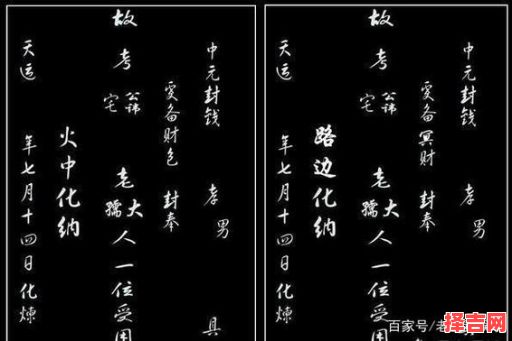 中元封钱 孝男 具
爰备财包 封奉
故考 公讳 宅 老大 孺 人一位受用
火中化纳
天运 年七月十四日化炼
中元封钱 孝男
爰备冥财 封奉
故考 公讳 宅 老大 孺 人一位受用
路边化纳
天运 年七月十四日化炼
百家号/老
择吉网